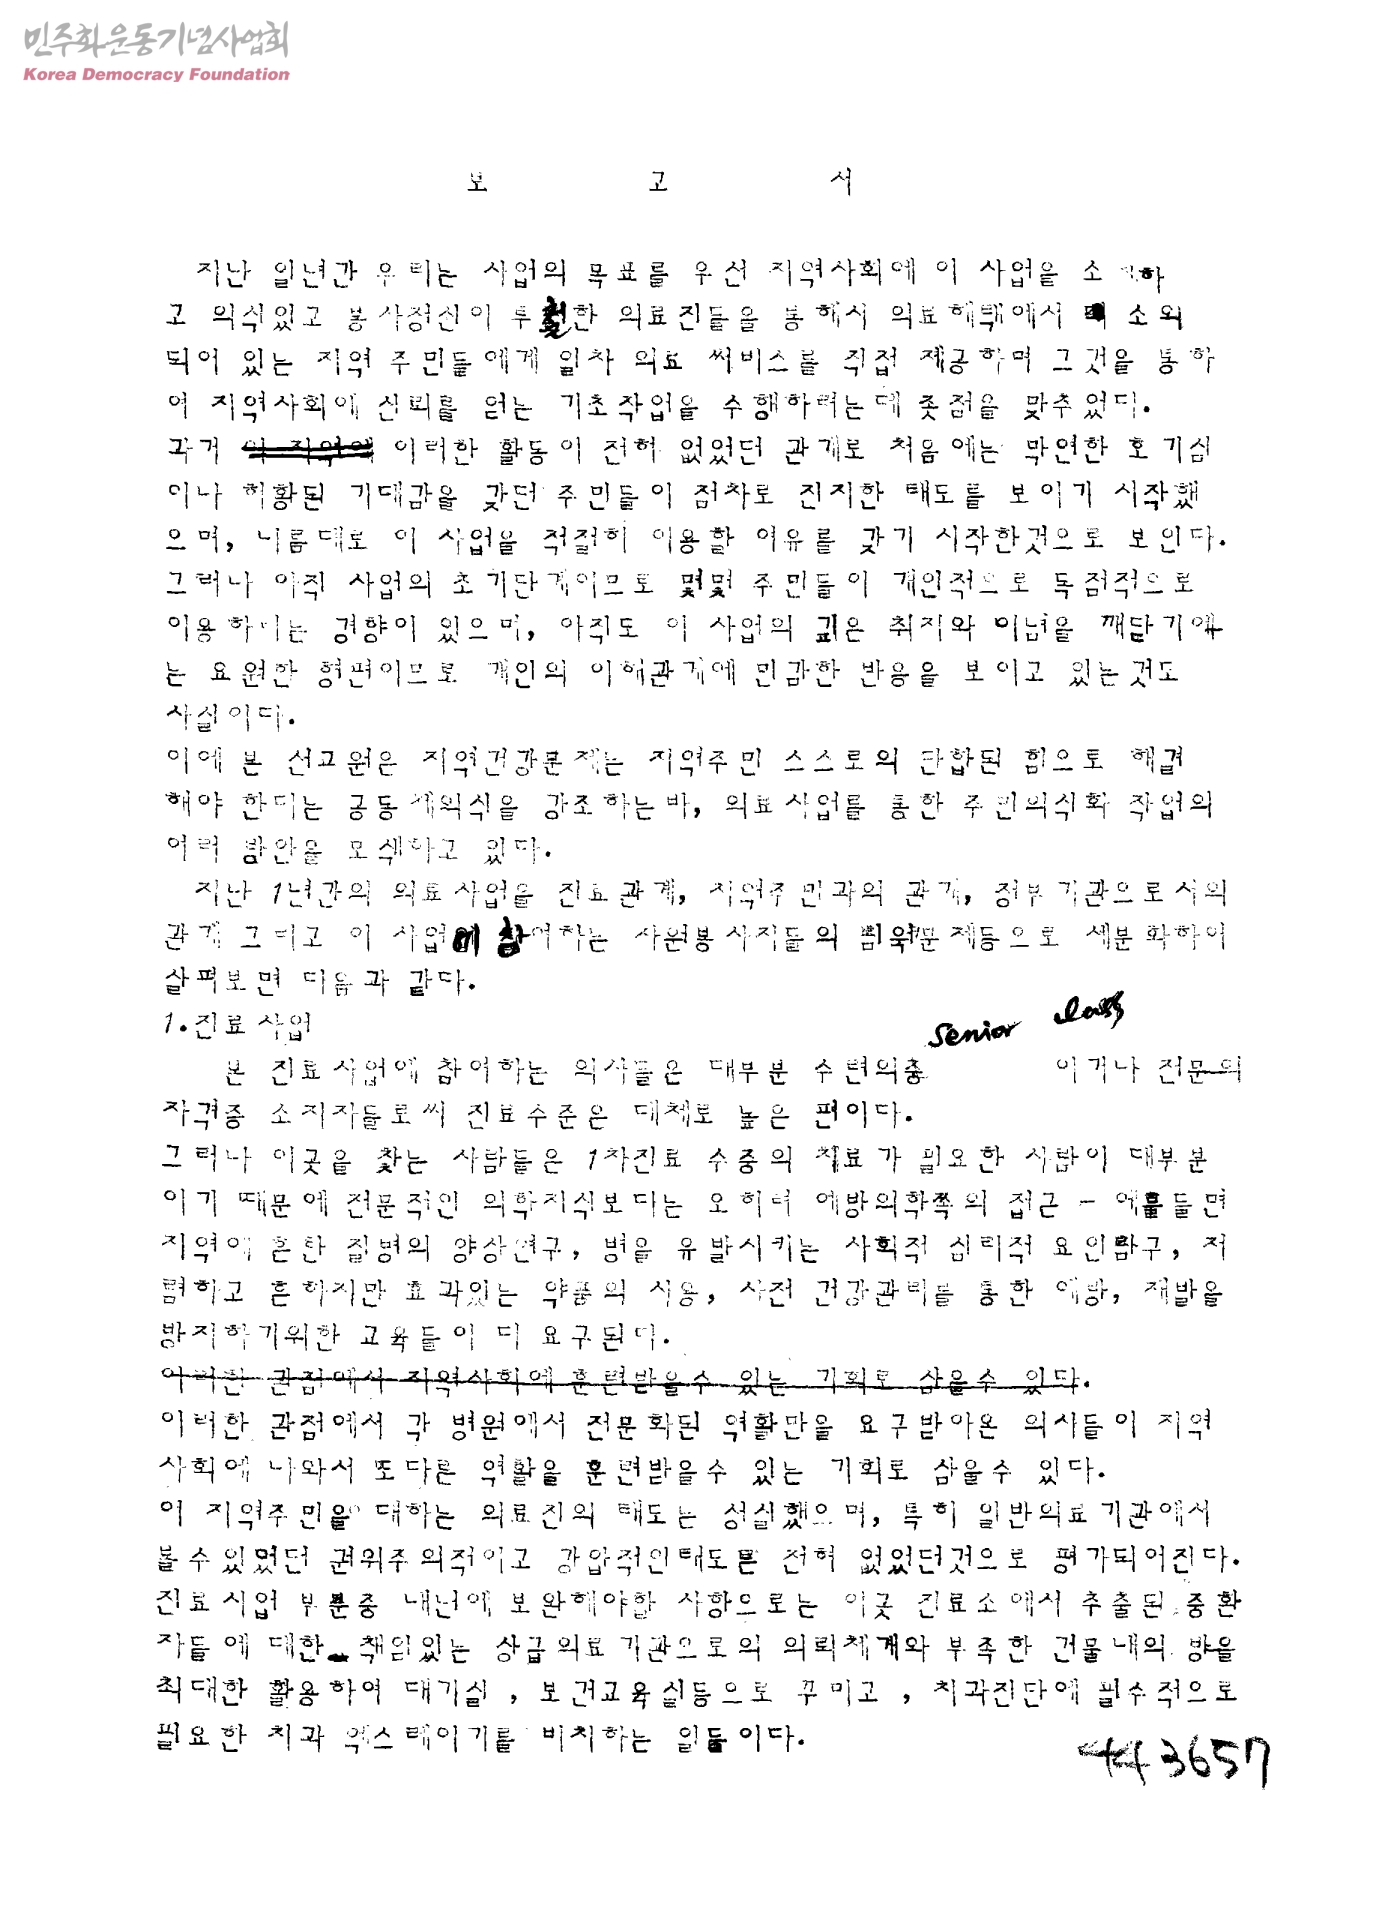 민주화운동기념사업회
Korea Democracy Foundation
보 고 서
지난 일년간 우리는 사업의 목표를 우선 지역사회에 이 사업을 소 하
고 의식있고 봉사정신이 투철한 의료진들을 통해서 의료혜택에서 소외
되어 있는 지역 주민들에게 일차 의료 써비스를 직접 제공하며 그것을 통하
여 지역사회에 신뢰를 얻는 기초작업을 수행하려는데 촛점을 맞추었다.
과거 이 지역에 이러한 활동이 전혀 없었던 관계로 처음에는 막연한 호기심
이나 허황된 기대감을 갖던 주민들이 점차로 진지한 태도를 보이기 시작했
으며, 나름대로 이 사업을 적절히 이용할 여유를 갖기 시작한것으로 보인다.
그러나 아직 사업의 초기단계이므로 몇몇 주민들이 개인적으로 독점적으로
이용하려는 경향이 있으며, 아직도 이 사업의 깊은 취지와 이념을 깨닫기에
는 요원한 형편이므로 개인의 이해관계에 민감한 반응을 보이고 있는것도
사실이다.
이에 본 선교원은 지역건강문제는 지역주민 스스로의 단합된 힘으로 해결
해야 한다는 공동체의식을 강조하는바, 의료사업을 통한 주민의식화 작업의
여러 방안을 모색하고 있다.
지난 1년간의 의료사업을 진료관계, 지역주민과의 관계, 정부기관으로서의
관계 그리고 이 사업에 참여하는 자원봉사자들의 문제등으로 세분화하여
살펴보면 다음과 같다.
1.진료사업
senior class
본 진료사업에 참여하는 의사들은 대부분 수련의중 이거나 전문의
자격증 소지자들로써 진료수준은 대체로 높은 편이다.
그러나 이곳을 찾는 사람들은 1차진료 수준의 치료가 필요한 사람이 대부분
이기 때문에 전문적인 의학지식보다는 오히려 예방의학쪽의 접근 - 예를들면
지역에 흔한 질병의 양상연구, 병을 유발시키는 사회적 심리적 요인탐구, 저
렴하고 흔하지만 효과있는 약품의 사용, 사전 건강관리를 통한 예방, 재발을
방지하기위한 교육들이 더 요구된다.
이러한 관점에서 지역사회에 훈련받을수 있는 기회로 삼을수 있다.
이러한 관점에서 각 병원에서 전문화된 역활만을 요구받아온 의사들이 지역
사회에 나와서 또다른 역활을 훈련받을수 있는 기회로 삼을수 있다.
이 지역주민을 대하는 의료진의 태도는 성실했으며, 특히 일반의료기관에서
볼수있었던 권위주의적이고 강압적인태도는 전혀 없었던것으로 평가되어진다.
진료사업 부분중 내년에 보완해야할 사항으로는 이곳 진료소에서 추출된 중환
자들에 대한 책임있는 상급의료기관으로의 의뢰체계와 부족한 건물내의 방을
최대한 활용하여 대기실 , 보건교육실등으로 꾸미고 , 치과진단에 필수적으로
필요한 치과 엑스레이기를 비치하는 일들이다.
443657